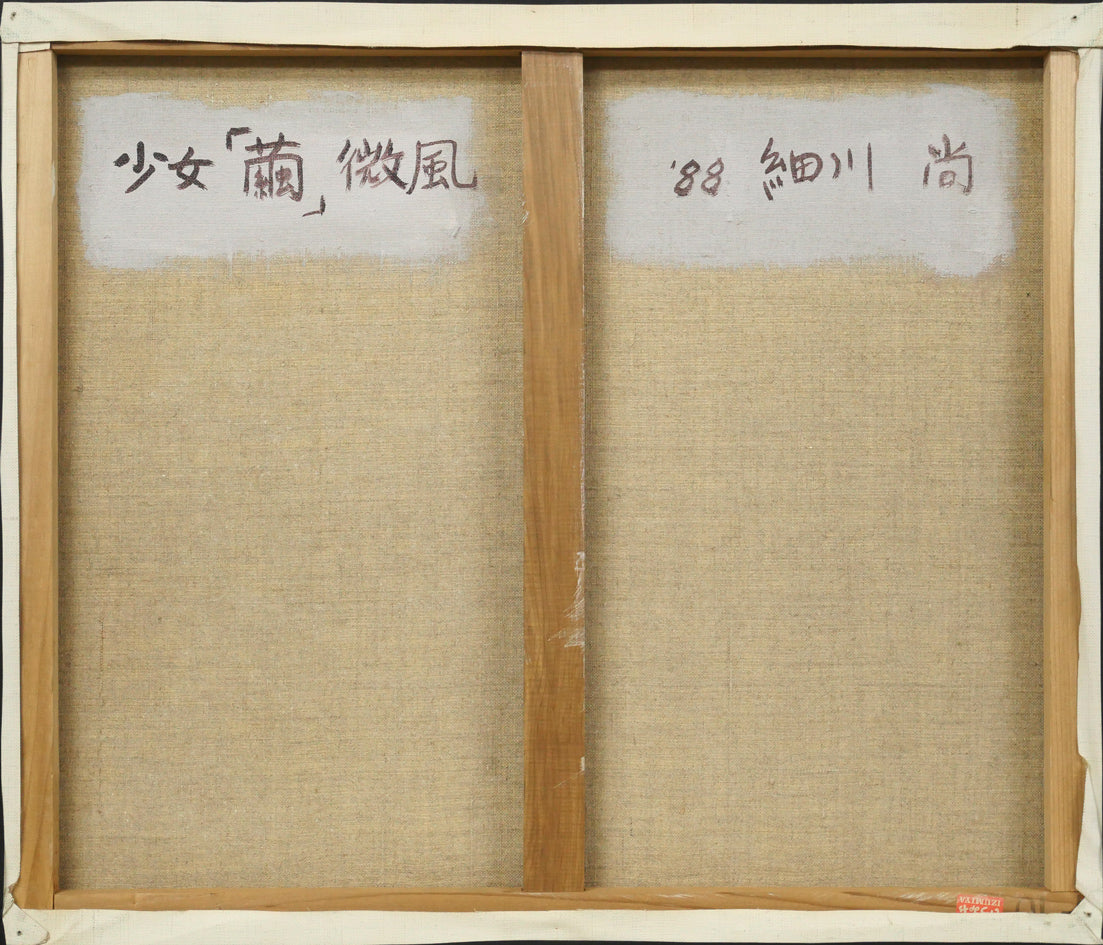 少女「繭」微風
'88 細川 尚
IZUMIYA